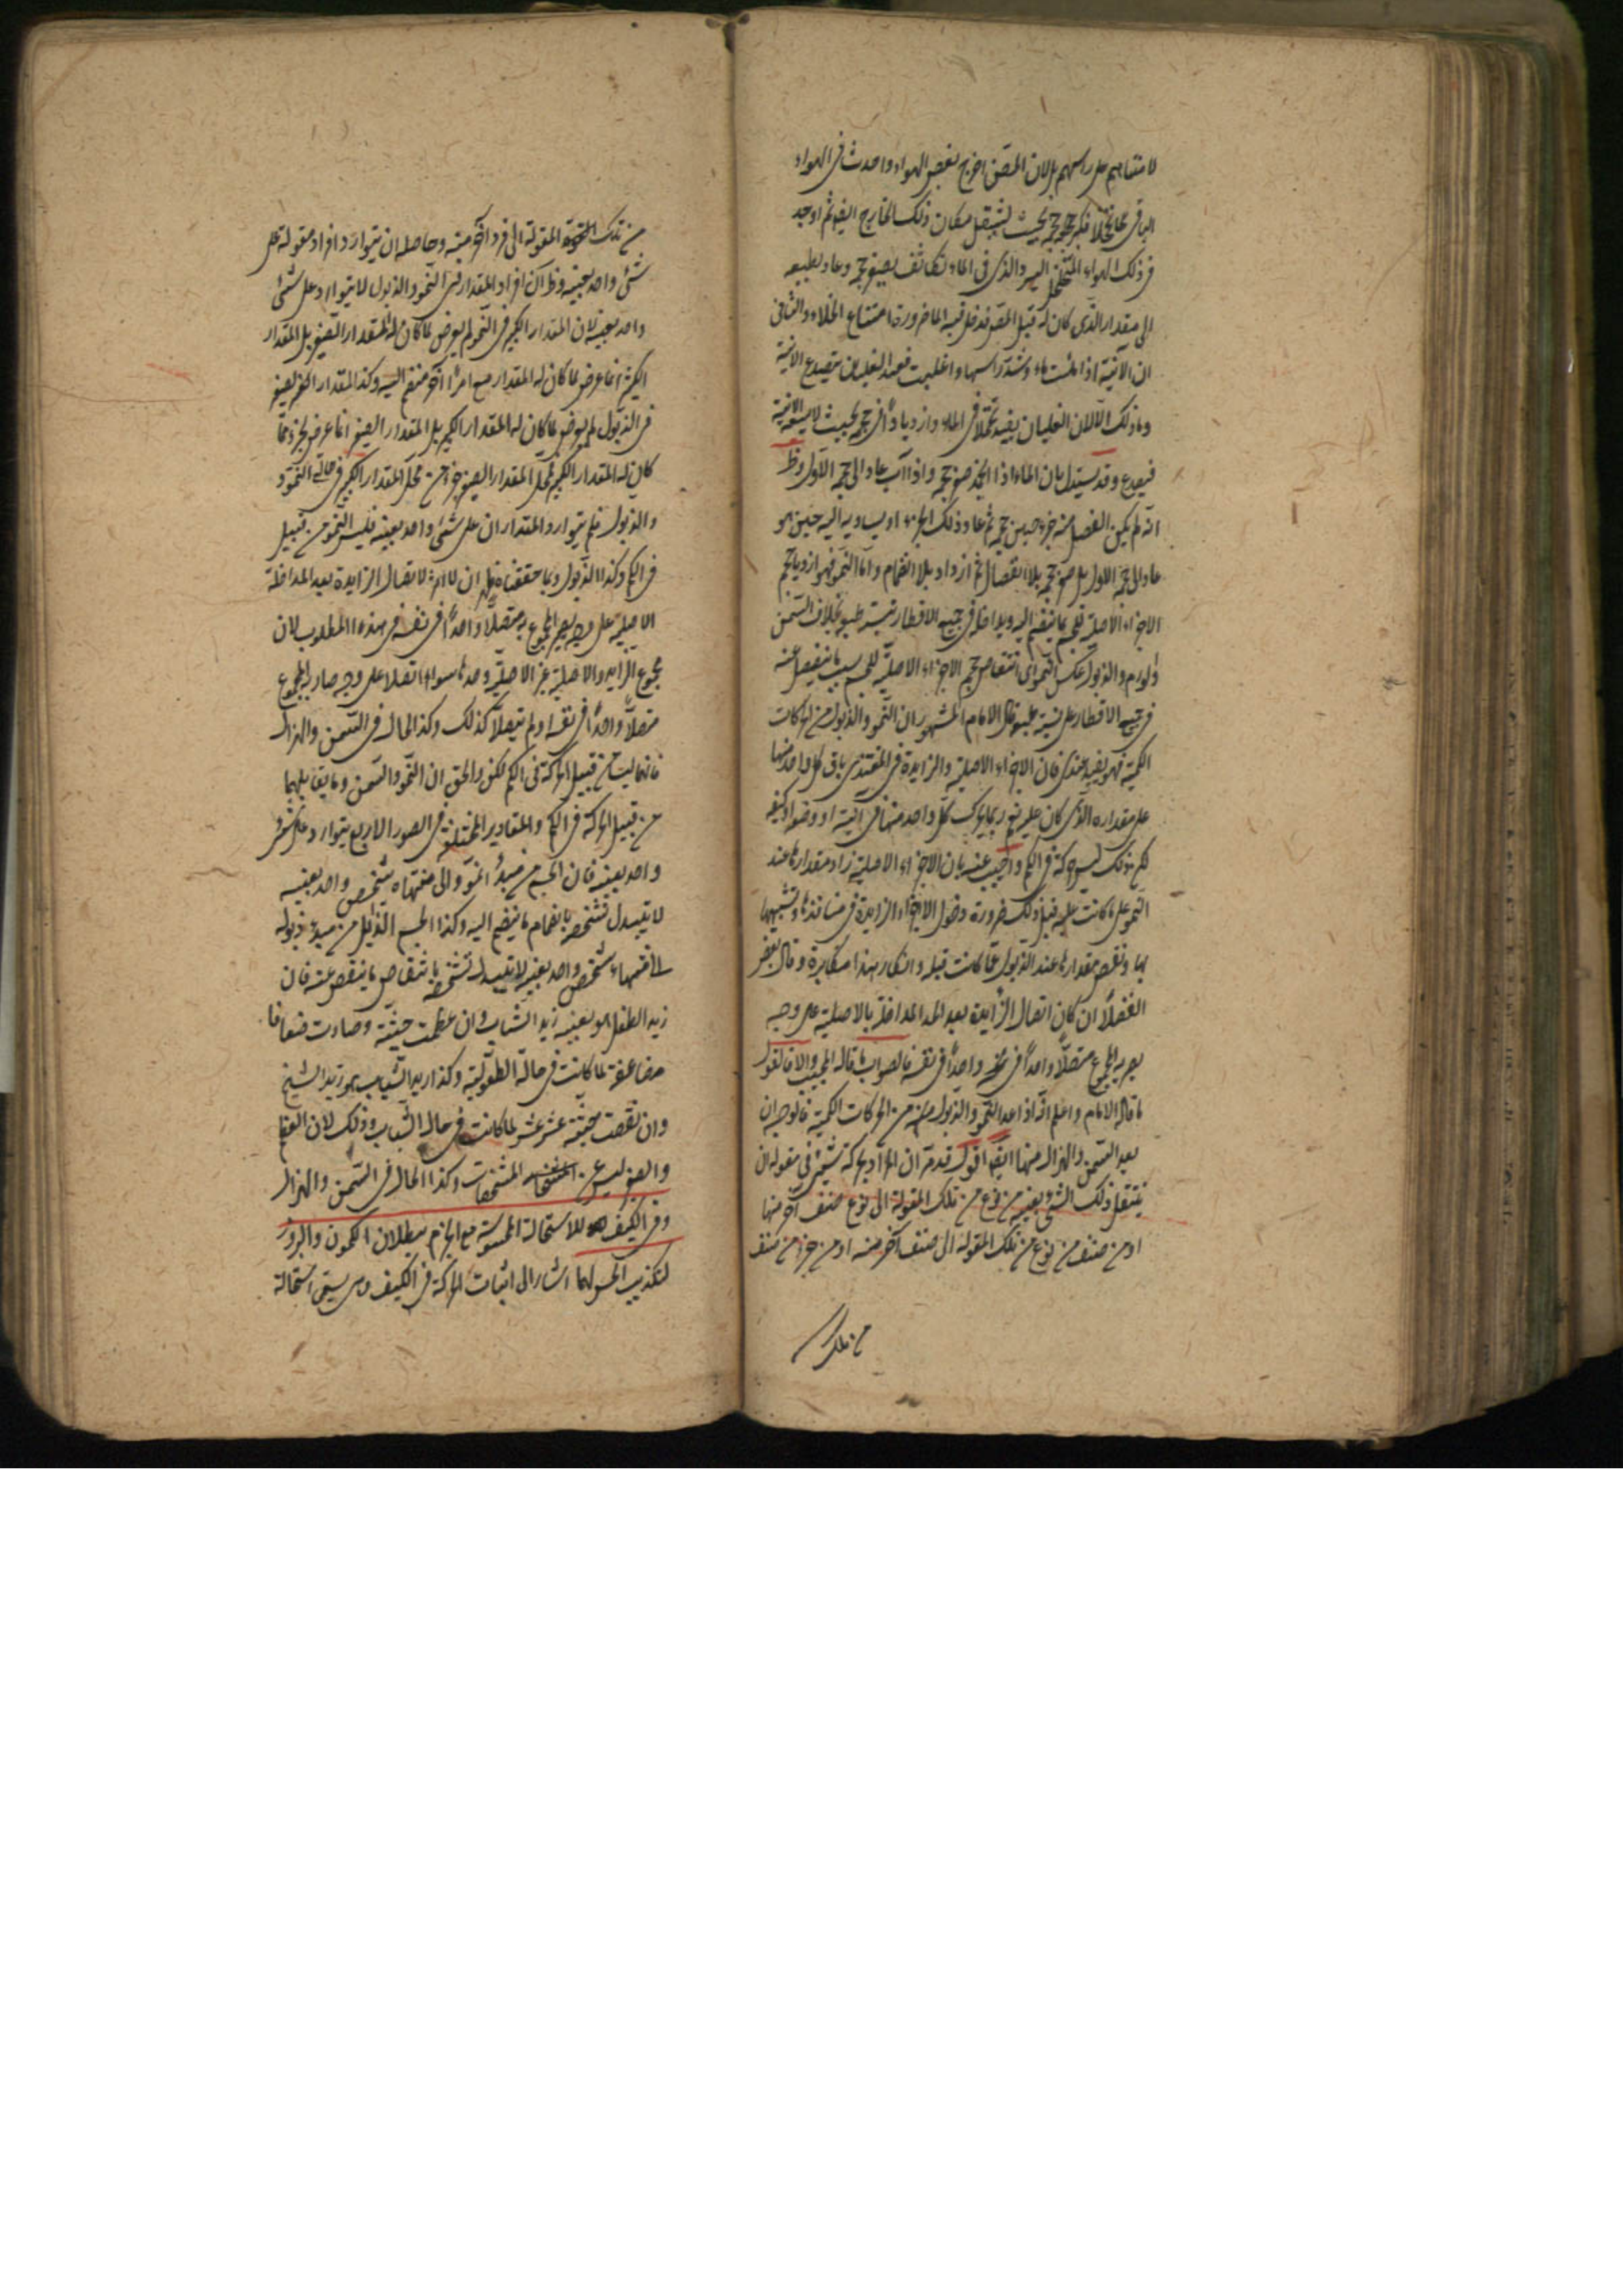 لا متناهيهم على راسهم بل لان المص اخرج بعض الهواء واحدث في الهواء
الباقي تخلخلا فكبر حجمه بحيث يشغل مكان ذلك الخارج ايضا ثم اوجد
في ذلك الهواء المتخلخل البرد الذي في الماء تكاثفا فصغر حجمه وعاد بطبيعه
الى مقداره الذي كان له قبل المص فدخل فيه الماء ضرورة امتناع الخلاء والثاني
ان الآنية اذا ملئت ماء وشد راسها واغليت فعند الغليان يتصدع الآنية
وما ذلك الا لان الغليان يفيد تخلخلا في الماء وازديادا في حجمه بحيث لا يسعه الآنية
فيصدع وقد يستدل بان الماء اذا انجمد صغر حجمه واذا ذاب عاد الى حجمه الاول وظ
انه لم يكن انفصل منه جزء حين صغر حجمه ثم عاد ذلك الجزء او يساويه اليه حين هو
عاد الى حجمه الاول بل صغر حجمه بلا انفصال ثم ازداد بلا انضمام واما النمو فهو ازدياد حجم
الاجزاء الاصلية للجسم بما ينضم اليه ويداخله في جميع الاقطار بنسبة طبيعية بخلاف السمن
والورم والذبول عكس النمو اى انتقاص حجم الاجزاء الاصلية للجسم بسبب ما ينفصل عنه
في جميع الاقطار على نسبة طبيعية قال الامام المشهور ان النمو والذبول من الحركات
الكمية فهو بعيد عندى فان الاجزاء الاصلية والزايدة في المغتذى باق كل واحد منها
على مقداره الذي كان عليه نعم ربما يحرك كل واحد منها في اينه او وضعه او كيفه
لكن ذلك ليس حركة في الكم واجيب عنه بان الاجزاء الاصلية زاد مقدارها عند
النمو على ما كانت عليه قبل ذلك ضرورة دخول الاجزاء الزايدة في منافذها وتشبهها
بها ونقص مقدارها عند الذبول عما كانت قبله وانكار هذا مكابرة وقال بعض
الفضلا ان كان اتصال الزايدة بعد المداخلة بالاصلية على وجه
يصير به المجموع متصلا واحدا في نفسه فالصواب ما قاله المجيب والا فالقول
ما قاله الامام واعلم انه اذا عد النمو والذبول من الحركات الكمية فالوجه ان
يعد السمن والهزال منها ايضا اقول قد مر ان المراد بحركة شئ في مقولة ان
ينتقل ذلك الشئ بعينه من نوع من تلك المقولة الى نوع صنف آخر منها
او من صنف من نوع من تلك المقولة الى صنف آخر منه او من جزء من صنف
من تلك
من تلك المقولة الى فرد آخر منه وحاصله ان يتوارد افراد مقولة على
شئ واحد بعينه وظ ان افراد المقدار في النمو والذبول لا يتوارد على شئ
واحد بعينه لان المقدار الكبير في النمو لم يعرض لما كان له المقدار الصغير بل المقدار
الكبير انما عرض لما كان له المقدار مع امر آخر منضم اليه وكذا المقدار الصغير
في الذبول لم يعرض لما كان له المقدار الكبير بل المقدار الصغير انما عرض لجزء مما
كان له المقدار الكبير فمحل المقدار الصغير جزء من محل المقدار الكبير في حالتي النمو
والذبول فلم يتوارد المقداران على شئ واحد بعينه فليس النمو من قبيل
في الكم وكذا الذبول وبما حققناه ظهر ان لا اثر لاتصال الزايدة بعد المداخلة
الاصلية على وجه يصير المجموع به متصلا واحدا في نفسه في هذا المطلوب لان
مجموع الزايد والاصلية غير الاصلية وحدها سواء اتصلا على وجه صار المجموع
متصلا واحدا في نفسه او لم يتصلا كذلك وكذا الحال في السمن والهزال
فانهما ليسا من قبيل الحركة في الكم لكن والحق ان النمو والسمن وما يقابلهما
من قبيل الحركة في الكم والمقادير المختلفة في الصور الاربع يتوارد على شئ
واحد بعينه فان الجسم من مبدأ النمو الى منتهاه شخص واحد بعينه
لا يتبدل تشخصه بانضمام ما ينضم اليه وكذا الجسم الذابل من مبدء ذبوله
الى منتهاه شخص واحد بعينه لا يتبدل تشخصه بانتقاص ما ينقص عنه فان
زيد الطفل هو بعينه زيد الشاب وان عظمت جثته وصارت ضعافا
مضاعفة لما كانت في حالة الطفولية وكذا زيد الشاب هو زيد الشيخ
وان نقصت جثته عشر عشر لما كانت في حال الشباب وذلك لان العظم
والصغر ليس من المشخصات وكذا الحال في السمن والهزال
وفي الكيف للاستحالة المحسوسة مع الجزم ببطلان الكمون والبروز
لتكذيب الحس لهما اشار الى اثبات الحركة في الكيف ويسمى استحالة